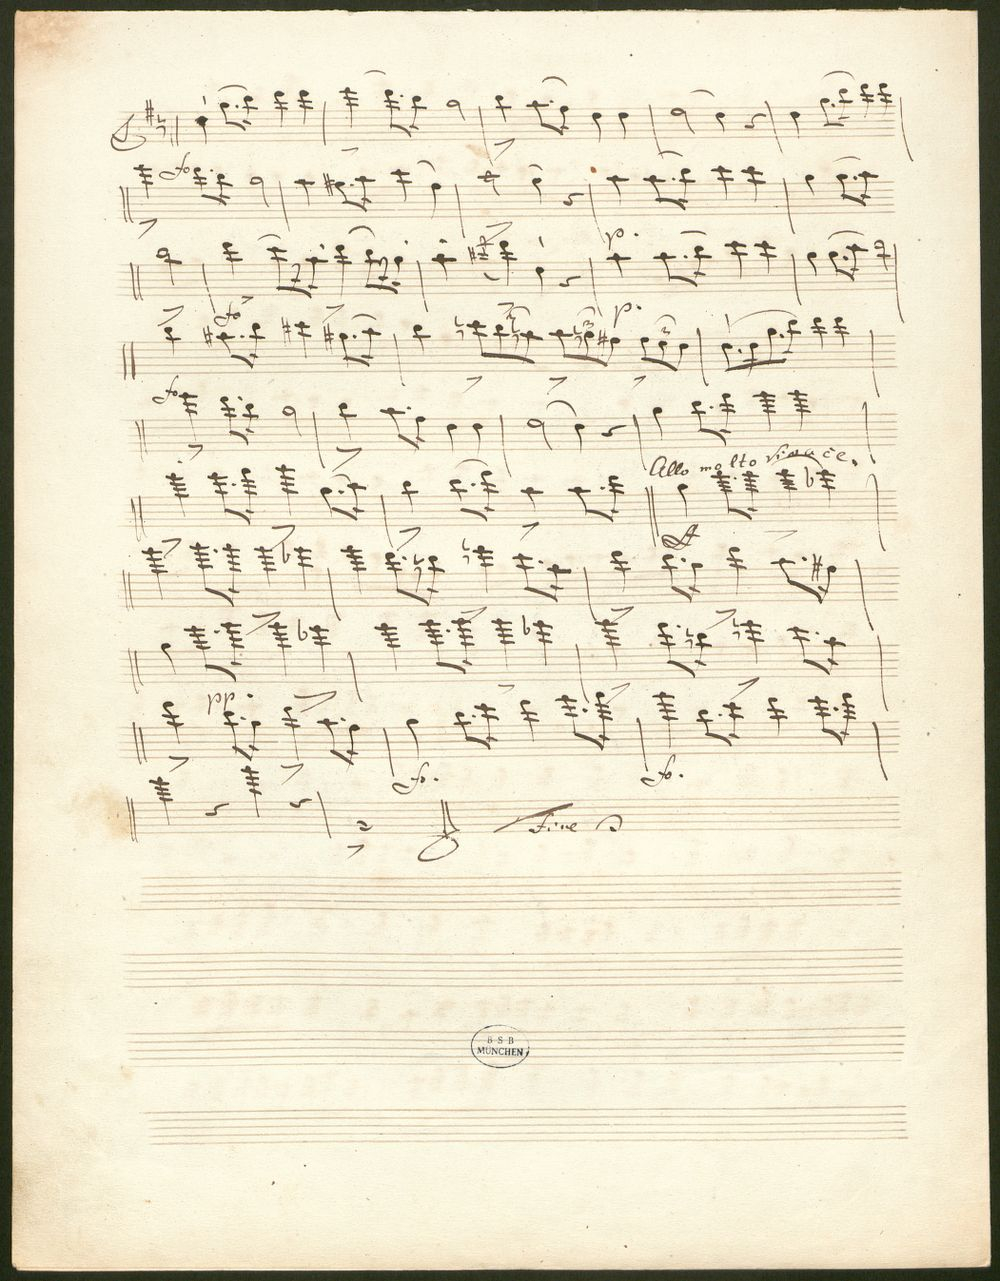 fo
p.
fo
p.
fo
Allo molto vivace.
ff
pp.
fo.
fo.
Fine
B S B
MÜNCHEN